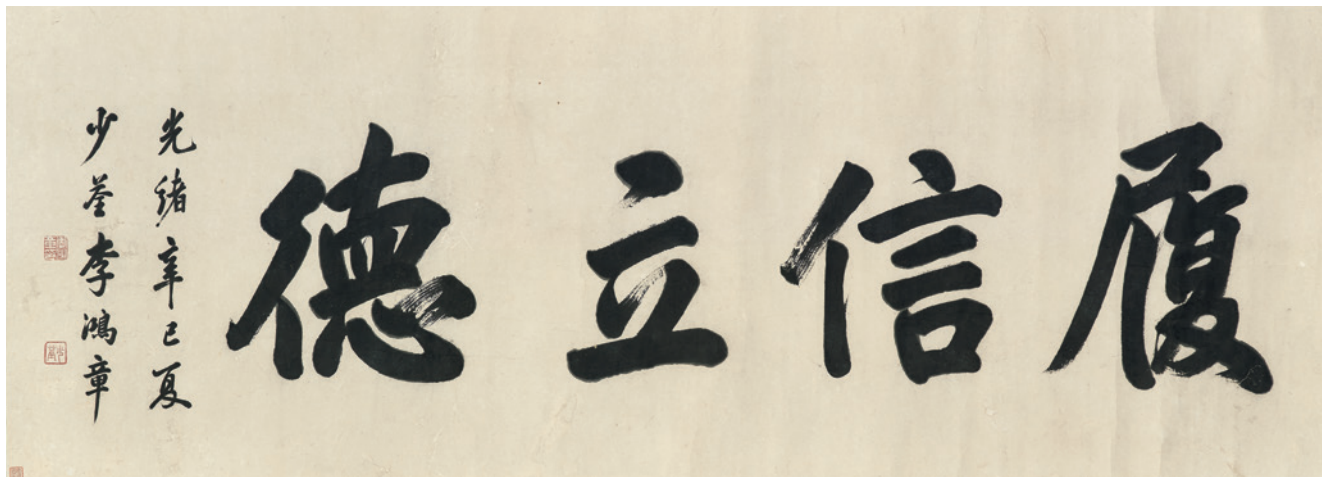 履信立德
光緒辛巳夏
少荃李鴻章